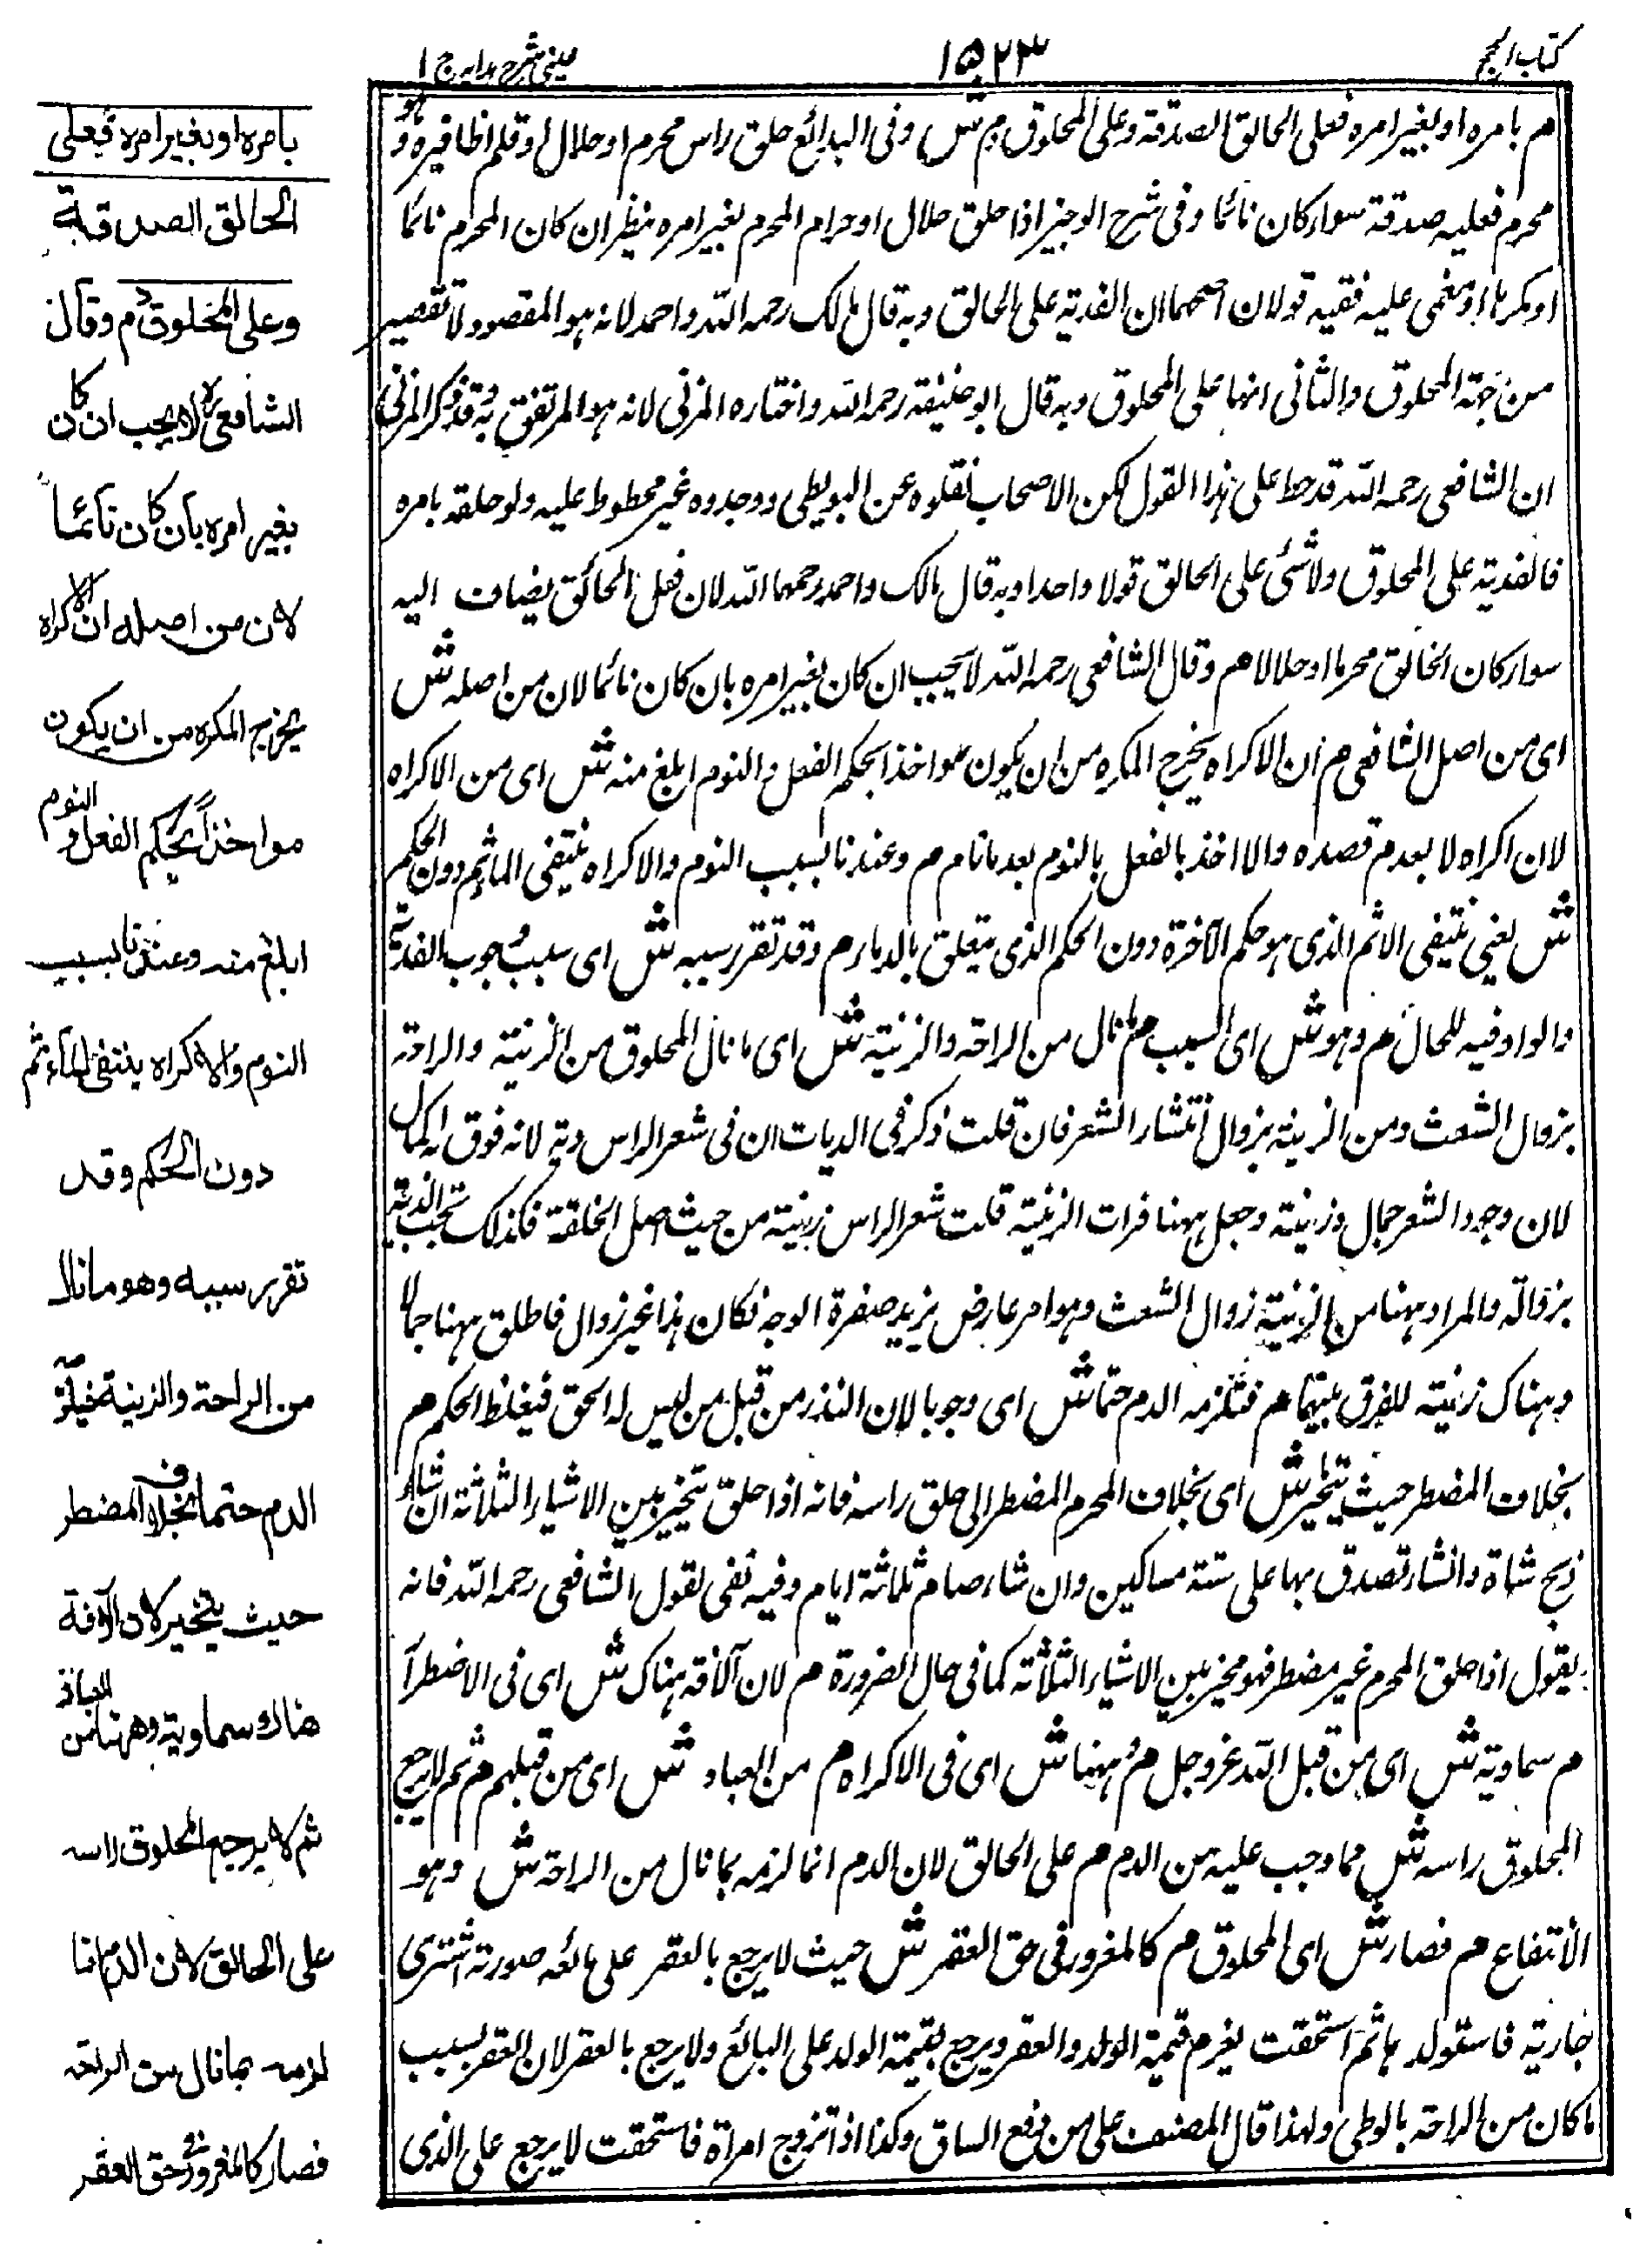 كتاب الحج
١٥٢٣
عينى شرح هدايہ ج ١
م بامره او بغير امره فعلى الحالق الصدقة وعلى المحلوق دم ش وفى البدائع حلق راس محرم او حلال او قلم اظافيره وهو
محرم فعليه صدقة سواء كان نائما وفى شرح الوجيز اذا حلق حلال او حرام المحرم بغير امره ينظر ان كان المحرم نائما
او مكرها او مغمى عليه ففيه قولان اصحهما ان الفدية على الحالق وبه قال مالك رحمه الله واحمد لانه هو المقصود ولا تقصير
من جهة المحلوق والثانى انها على المحلوق وبه قال ابو حنيفة رحمه الله واختاره المزنى لانه هو المرتفق به وقد ذكر المزنى
ان الشافعى رحمه الله قد حط على هذا القول لكن الاصحاب نقلوه عن البويطى ووجدوه غير محطوط عليه ولو حلقه بامره
فالفدية على المحلوق ولا شئ على الحالق قولا واحدا وبه قال مالك واحمد رحمهما الله لان فعل الحالق يضاف اليه
سواء كان الحالق محرما او حلالا م وقال الشافعى رحمه الله لا يجب ان كان بغير امره بان كان نائما لان من اصله ش
اى من اصل الشافعى م ان الاكراه يخرج المكره من ان يكون مواخذا بحكم الفعل والنوم ابلغ منه ش اى من الاكراه
لان اكراه لا يعدم قصده والا اخذ بالفعل بالنوم بعد ما نام م وعندنا بسبب النوم والاكراه ينتفى الماثم دون الحكم
ش يعنى ينتفى الاثم الذى هو حكم الآخرة دون الحكم الذى يتعلق بالدنيا م وقد تقرر سببه ش اى سبب وجوب الفدية
والواو فيه للحال م وهو ش اى السبب م ما نال من الراحة والزينة ش اى ما نال المحلوق من الزينة والراحة
بزوال الشعث ومن الزينة بزوال انتشار الشعر فان قلت ذكر فى الديات ان فى شعر الراس دية لانه فوق الكمال
لان وجود الشعر جمال وزينة وجعل ههنا فوات الزينة قلت شعر الراس زينة من حيث اصل الخلقة فكذلك تجب الدية
بزواله والمراد ههنا من الزينة زوال الشعث وهو امر عارض يزيد صفرة الوجه فكان هذا غير زوال فاطلق ههنا جمالا
وهناك زينة للفرق بينهما م فتلزمه الدم حتما ش اى وجوبا لان النذر من قبل من ليس له الحق فيغلظ الحكم م
بخلاف المضطر حيث يتخير ش اى بخلاف المحرم المضطر الى حلق راسه فانه اذا حلق يتخير بين الاشياء الثلاثة ان شاء
ذبح شاة وان شاء تصدق بها على ستة مساكين وان شاء صام ثلاثة ايام وفيه نفى لقول الشافعى رحمه الله فانه
يقول اذا حلق المحرم غير مضطر فهو مخير بين الاشياء الثلاثة كما فى حال الضرورة م لان الآفة هناك ش اى فى الاضطرار
م سماوية ش اى من قبل الله عز وجل م وههنا ش اى فى الاكراه م من العباد ش اى من قبلهم م ثم لا يرجع
المحلوق راسه ش مما وجب عليه من الدم م على الحالق لان الدم انما لزمه بما نال من الراحة ش وهو
الانتفاع م فصار ش اى المحلوق م كالمغرور فى حق العقر ش حيث لا يرجع بالعقر على بائعه صورته اشترى
جارية فاستولدها ثم استحقت يغرم قيمة الولد والعقر ويرجع بقيمة الولد على البائع ولا يرجع بالعقر لان العقر بسبب
ما كان من الراحة بالوطى ولهذا قال المصنف على من دفع الساق وكذا اذا تزوج امراة فاستحقت لا يرجع على الذى
بامره او بغير امره فعلى
الحالق الصدقة
وعلى المحلوق دم وقال
الشافعى رح لا يجب ان كان
بغير امره بان كان نائما
لان من اصله ان الاكراه
يخرج المكره من ان يكون
مواخذاً بحكم الفعل والنوم
ابلغ منه وعندنا بسبب
النوم والاكراه ينتفى الماثم
دون الحكم وقد
تقرر سببه وهو ما نال
من الراحة والزينة فيلزمه
الدم حتما بخلاف المضطر
حيث يتخير لان الآفة
هناك سماوية وههنا من العباد
ثم لا يرجع المحلوق راسه
على الحالق لان الدم انما
لزمه بما نال من الراحة
فصار كالمغرور فى حق العقر